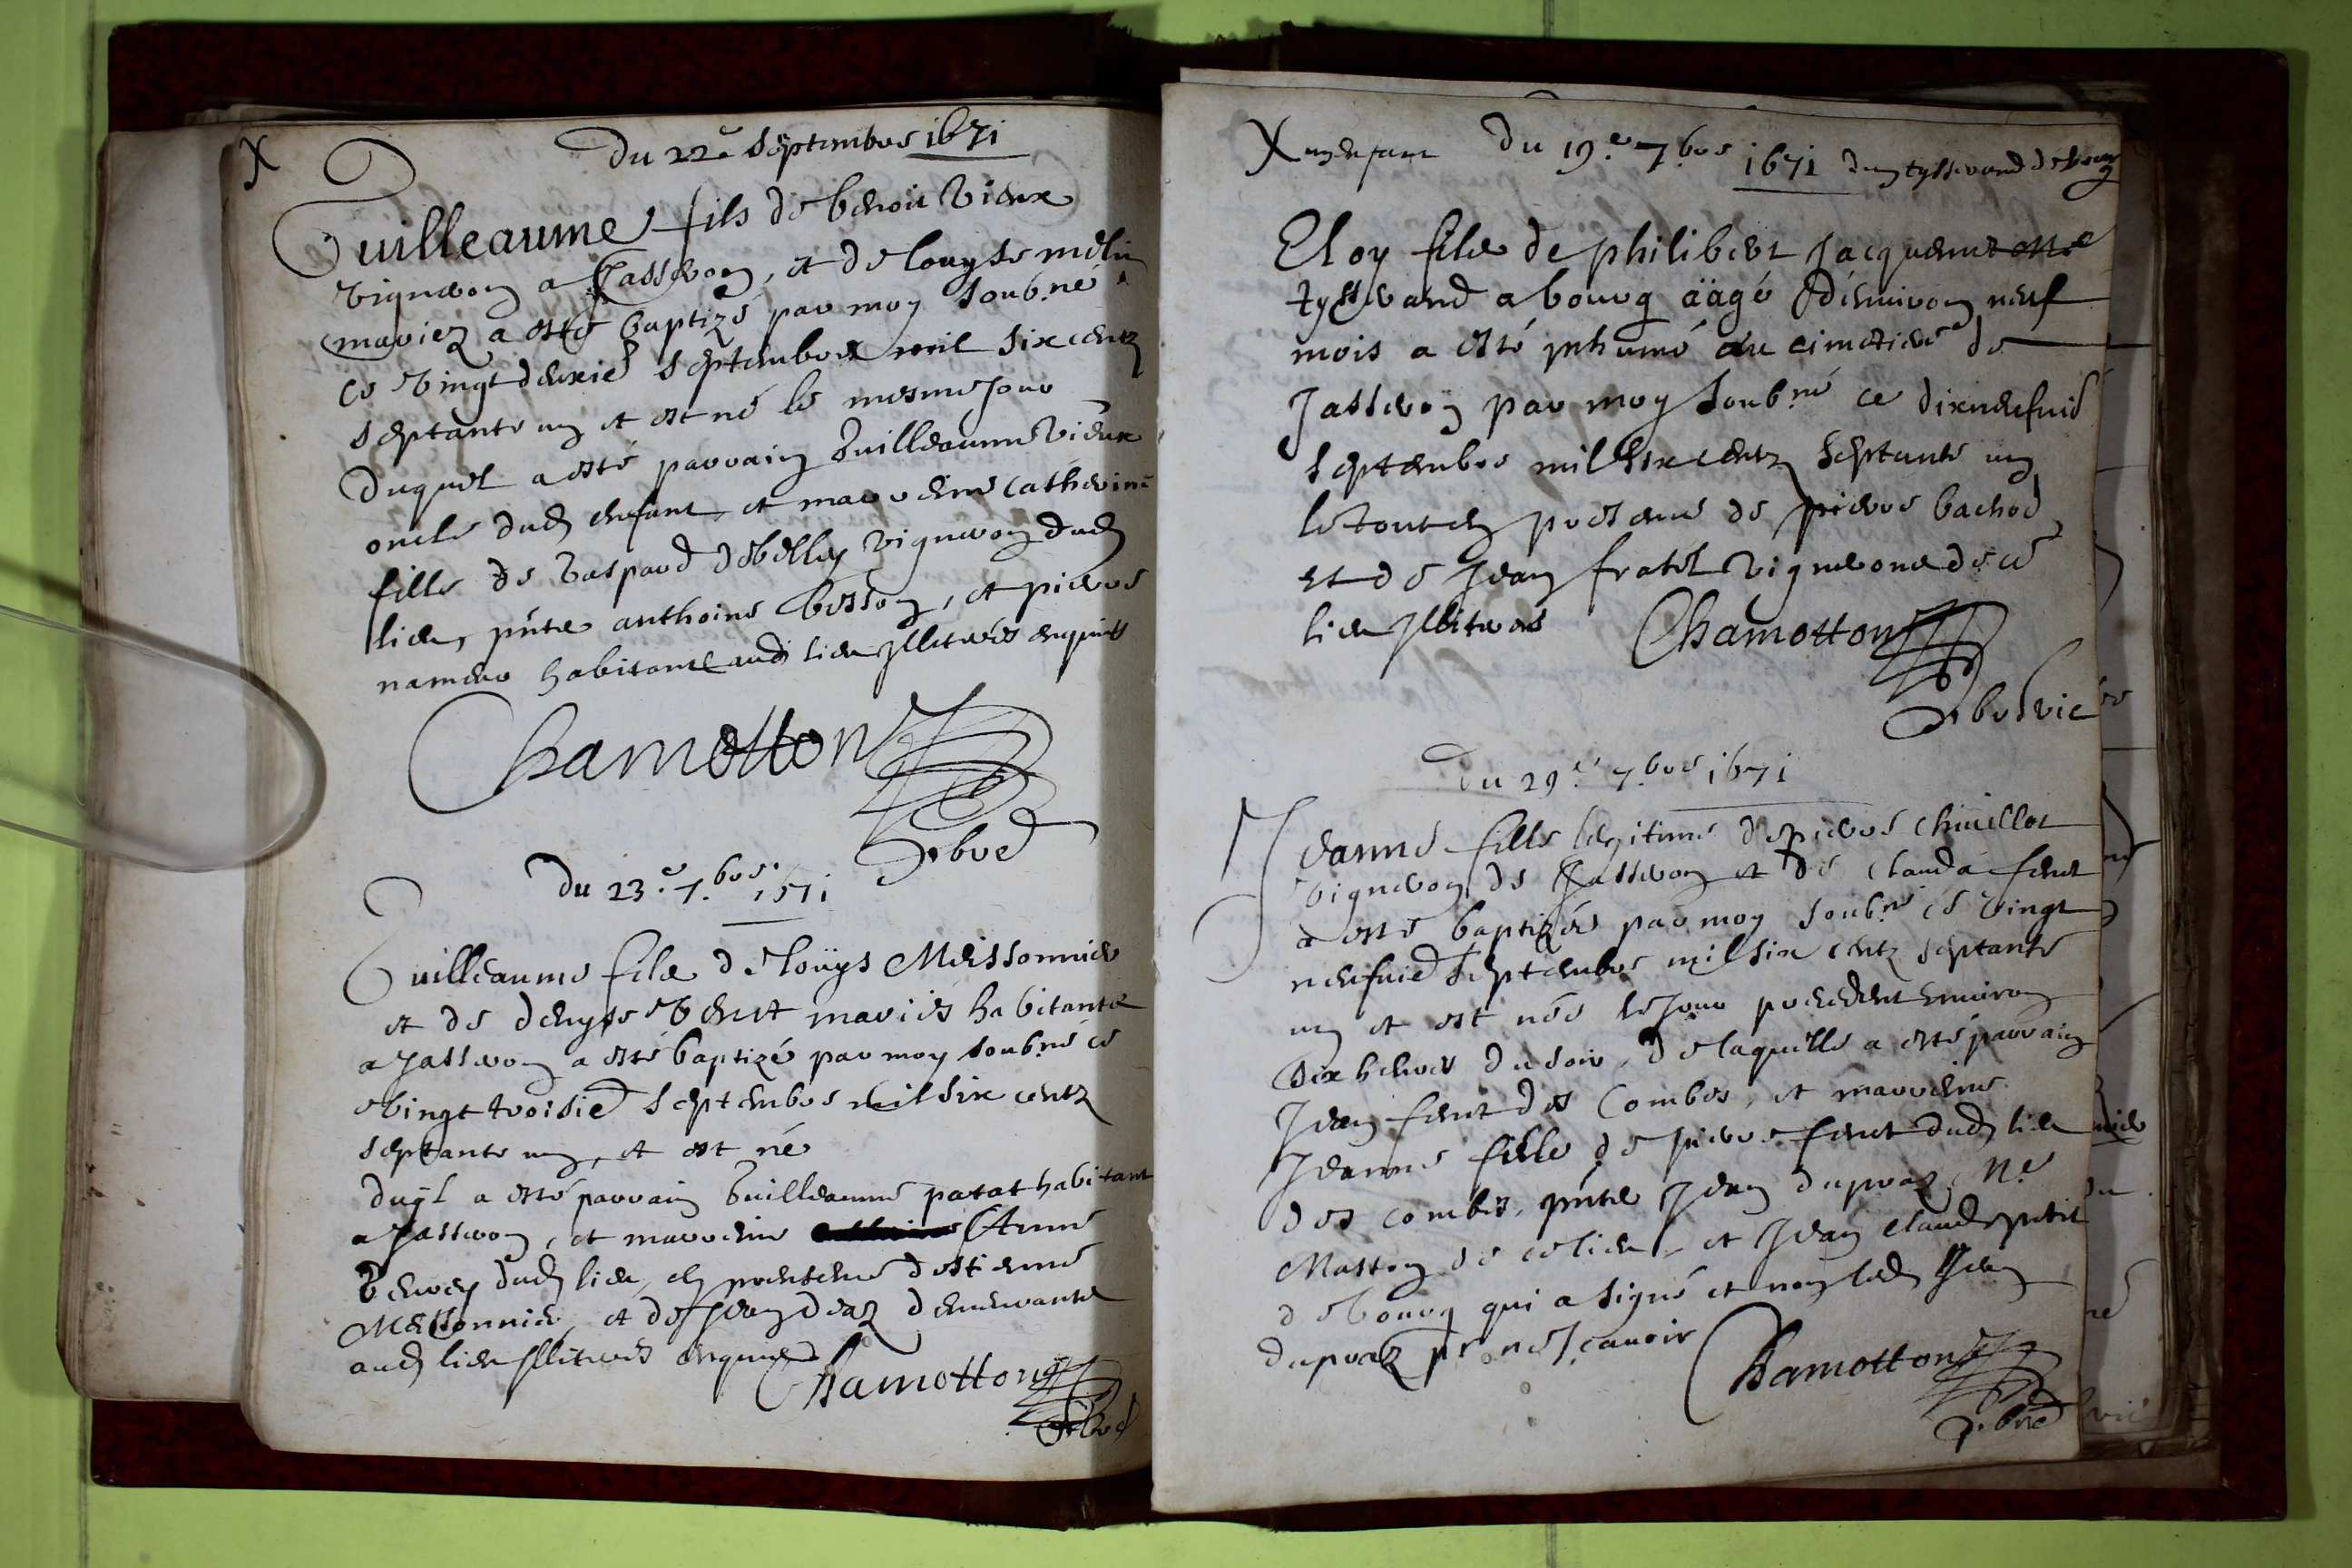 X
Du 22e Septembre 1671
Guilleaume fils de benoit vieux
vigneron a Jasseron, et de louyse melin
mariez a esté baptizé par moy soub.né
ce vingt deuxie septembre mil six centz
septante un et est né le mesme jour
duquel a esté parrain Guilleaume vieux
oncle dud enfant et marreine catherine
fille de Gaspard debelley vigneron dud
lieu, pnte anthoine besson, et pierre
habitants aud lieu illiterés enquis
Chamotton
du 23.e 7.bre 1671
Guilleaume filz de Loüys Meissonnier
et de denyse venet mariés habitantz
a Jasseron a esté baptizé par moy soubné ce
vingt troisie septembre mil six centz
septante un, et est né
duql a esté parrain Guilleaume patat habitant
a Jasseron, et marreine Anne
dud lieu en presence destienne
Messonnier, et de Jean deaz demeurantz
aud lieu illiterés enquis
Chamotton
X un enfant Du 19.e 7.bre 1671 dun tysserand de bourg
Eloy filz de philibert Jacquemet
tysserand a bourg äagé denviron neuf
mois a esté inhumé au cimetiere de
Jasseron par moy soubné ce dixneufuie
septembre mil six centz septante un
le tout en presence de pierre bachod
et de Jean fratel vignerons de ce
lieu illiterés Chamotton
du 29.e 7.bre 1671
Jeanne fille legitime de pierre chivillot
vigneron de Jasseron et de Clauda feret
a esté baptizée par moy soubné ce vingt
neufuie septembre mil six centz septante
un et est née le jour precedent environ
six heures du soir, de laquelle a esté parrain
Jean feret des Combes, et marreine
Jeanne fille de pierre feret dud lieu
des combes, pnte Jean dupraz Me
Masson de ce lieu et Jean claude petit
de bourg qui a signé et non led Jean
dupraz pr ne sçavoir Chamotton